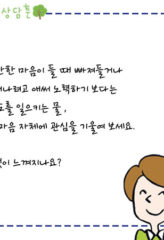 상담톤
마음이 들 때 빠져들거나
애써 노력하기 보다는
일으키는 물,
마음 자체에 관심을 기울여 보세요.
느껴지나요?